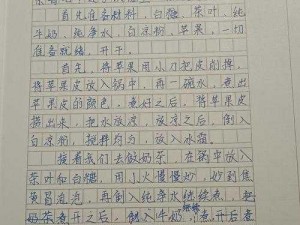 首先准备材料,白糖,茶叶,纯
牛奶,纯净水,白凉粉,苹果,一切
准备就绪,开干。
首先,将苹果用小刀把皮削掉,
将苹果皮放入锅中,再一碗水,煮出
苹果皮的颜色,煮好之后,将苹果皮
捞出来,把水放凉,放凉之后,倒入
白凉粉,搅拌均匀,放入冰箱。
接着我们去做奶茶,在锅中放入
茶叶和白糖,用小火慢慢炒,炒到焦
黄冒泡,再倒入纯净水继续煮,把
奶茶煮开之后,倒入牛奶,继续煮,煮开后煮